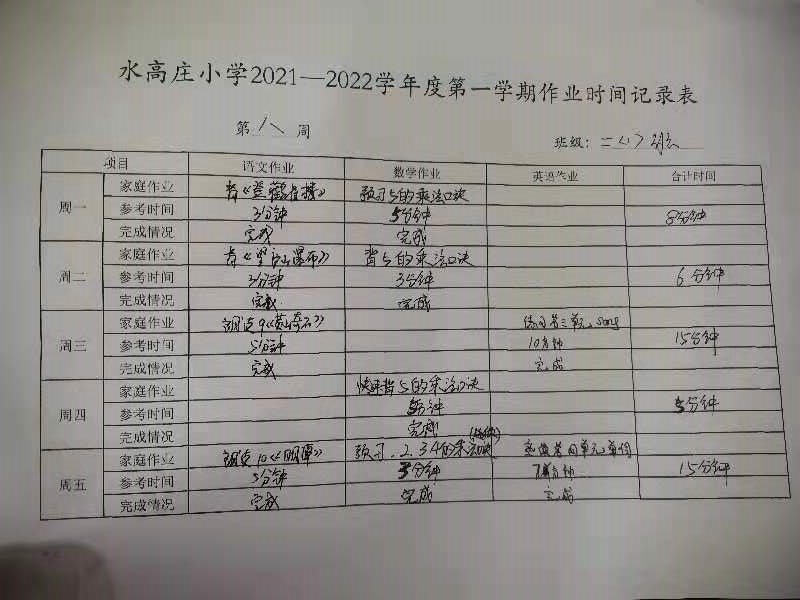 水高庄小学2021—2022学年度第一学期作业时间记录表
第 八 周 班级：二（1）班
项目 语文作业 数学作业 英语作业 合计时间
周一 家庭作业 背《登鹳雀楼》 预习5的乘法口诀
参考时间 3分钟 5分钟 8分钟
完成情况 完成 完成
周二 家庭作业 背《望庐山瀑布》 背5的乘法口诀
参考时间 3分钟 3分钟 6分钟
完成情况 完成 完成
周三 家庭作业 朗读9《黄山奇石》 练习第三单元song
参考时间 5分钟 10分钟 15分钟
完成情况 完成 完成
周四 家庭作业 快速背5的乘法口诀
参考时间 5分钟 5分钟
完成情况 完成
周五 家庭作业 朗读10《日月潭》 预习1.2.3.4的乘法口诀 第四单元单词
参考时间 5分钟 3分钟 7分钟 15分钟
完成情况 完成 完成 完成